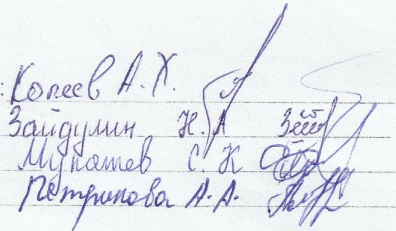 Копеев А.Х.
Зайдулин Н.А
Мукатаев С.К
Петрикова А.А.